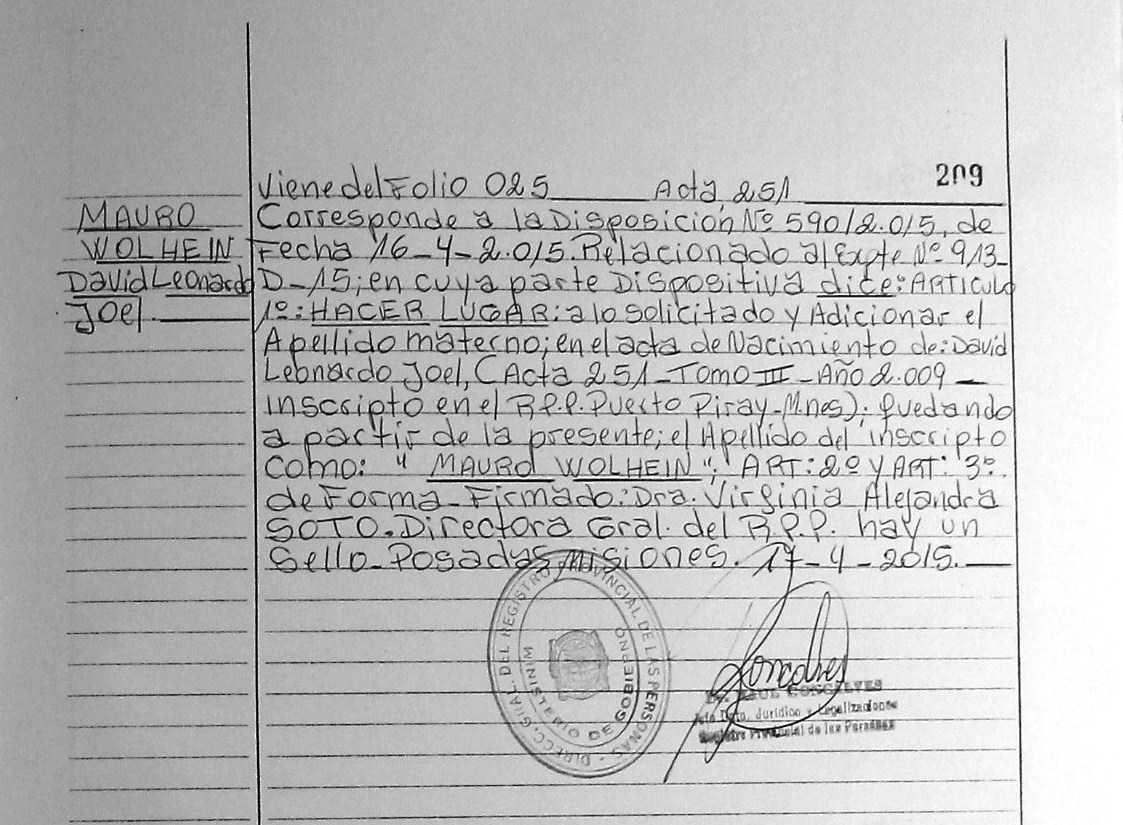 209
Viene del Folio 025 Acta 251
MAURO
WOLHEIN
David Leonardo
Joel.
Corresponde a la Disposicion Nº 590/2.015, de
Fecha 16-4-2.015. Relacionado al Expte Nº 913-
D-15; en cuya parte Dispositiva dice: ARTiculo
1º: HACER LUGAR: a lo solicitado y Adicionar el
Apellido materno; en el acta de Nacimiento de: David
Leonardo Joel, (Acta 251 - Tomo III - Año 2.009 -
inscripto en el R.P.P. Puerto Piray - Mnes); quedando
a partir de la presente; el Apellido del inscripto
como: " MAURO WOLHEIN "; ART: 2º y ART: 3º.
de Forma - Firmado: Dra. Virginia Alejandra
SOTO. Directora Gral. del R.P.P. hay un
Sello - Posadas Misiones. 17-4-2015.
DIRECC. GRAL. DEL REGISTRO PROVINCIAL DE LAS PERSONAS -
MINISTERIO DE GOBIERNO
Goncalves
RAUL GONCALVES
Jefe Dpto. Jurídico y Legalizaciones
Registro Provincial de las Personas